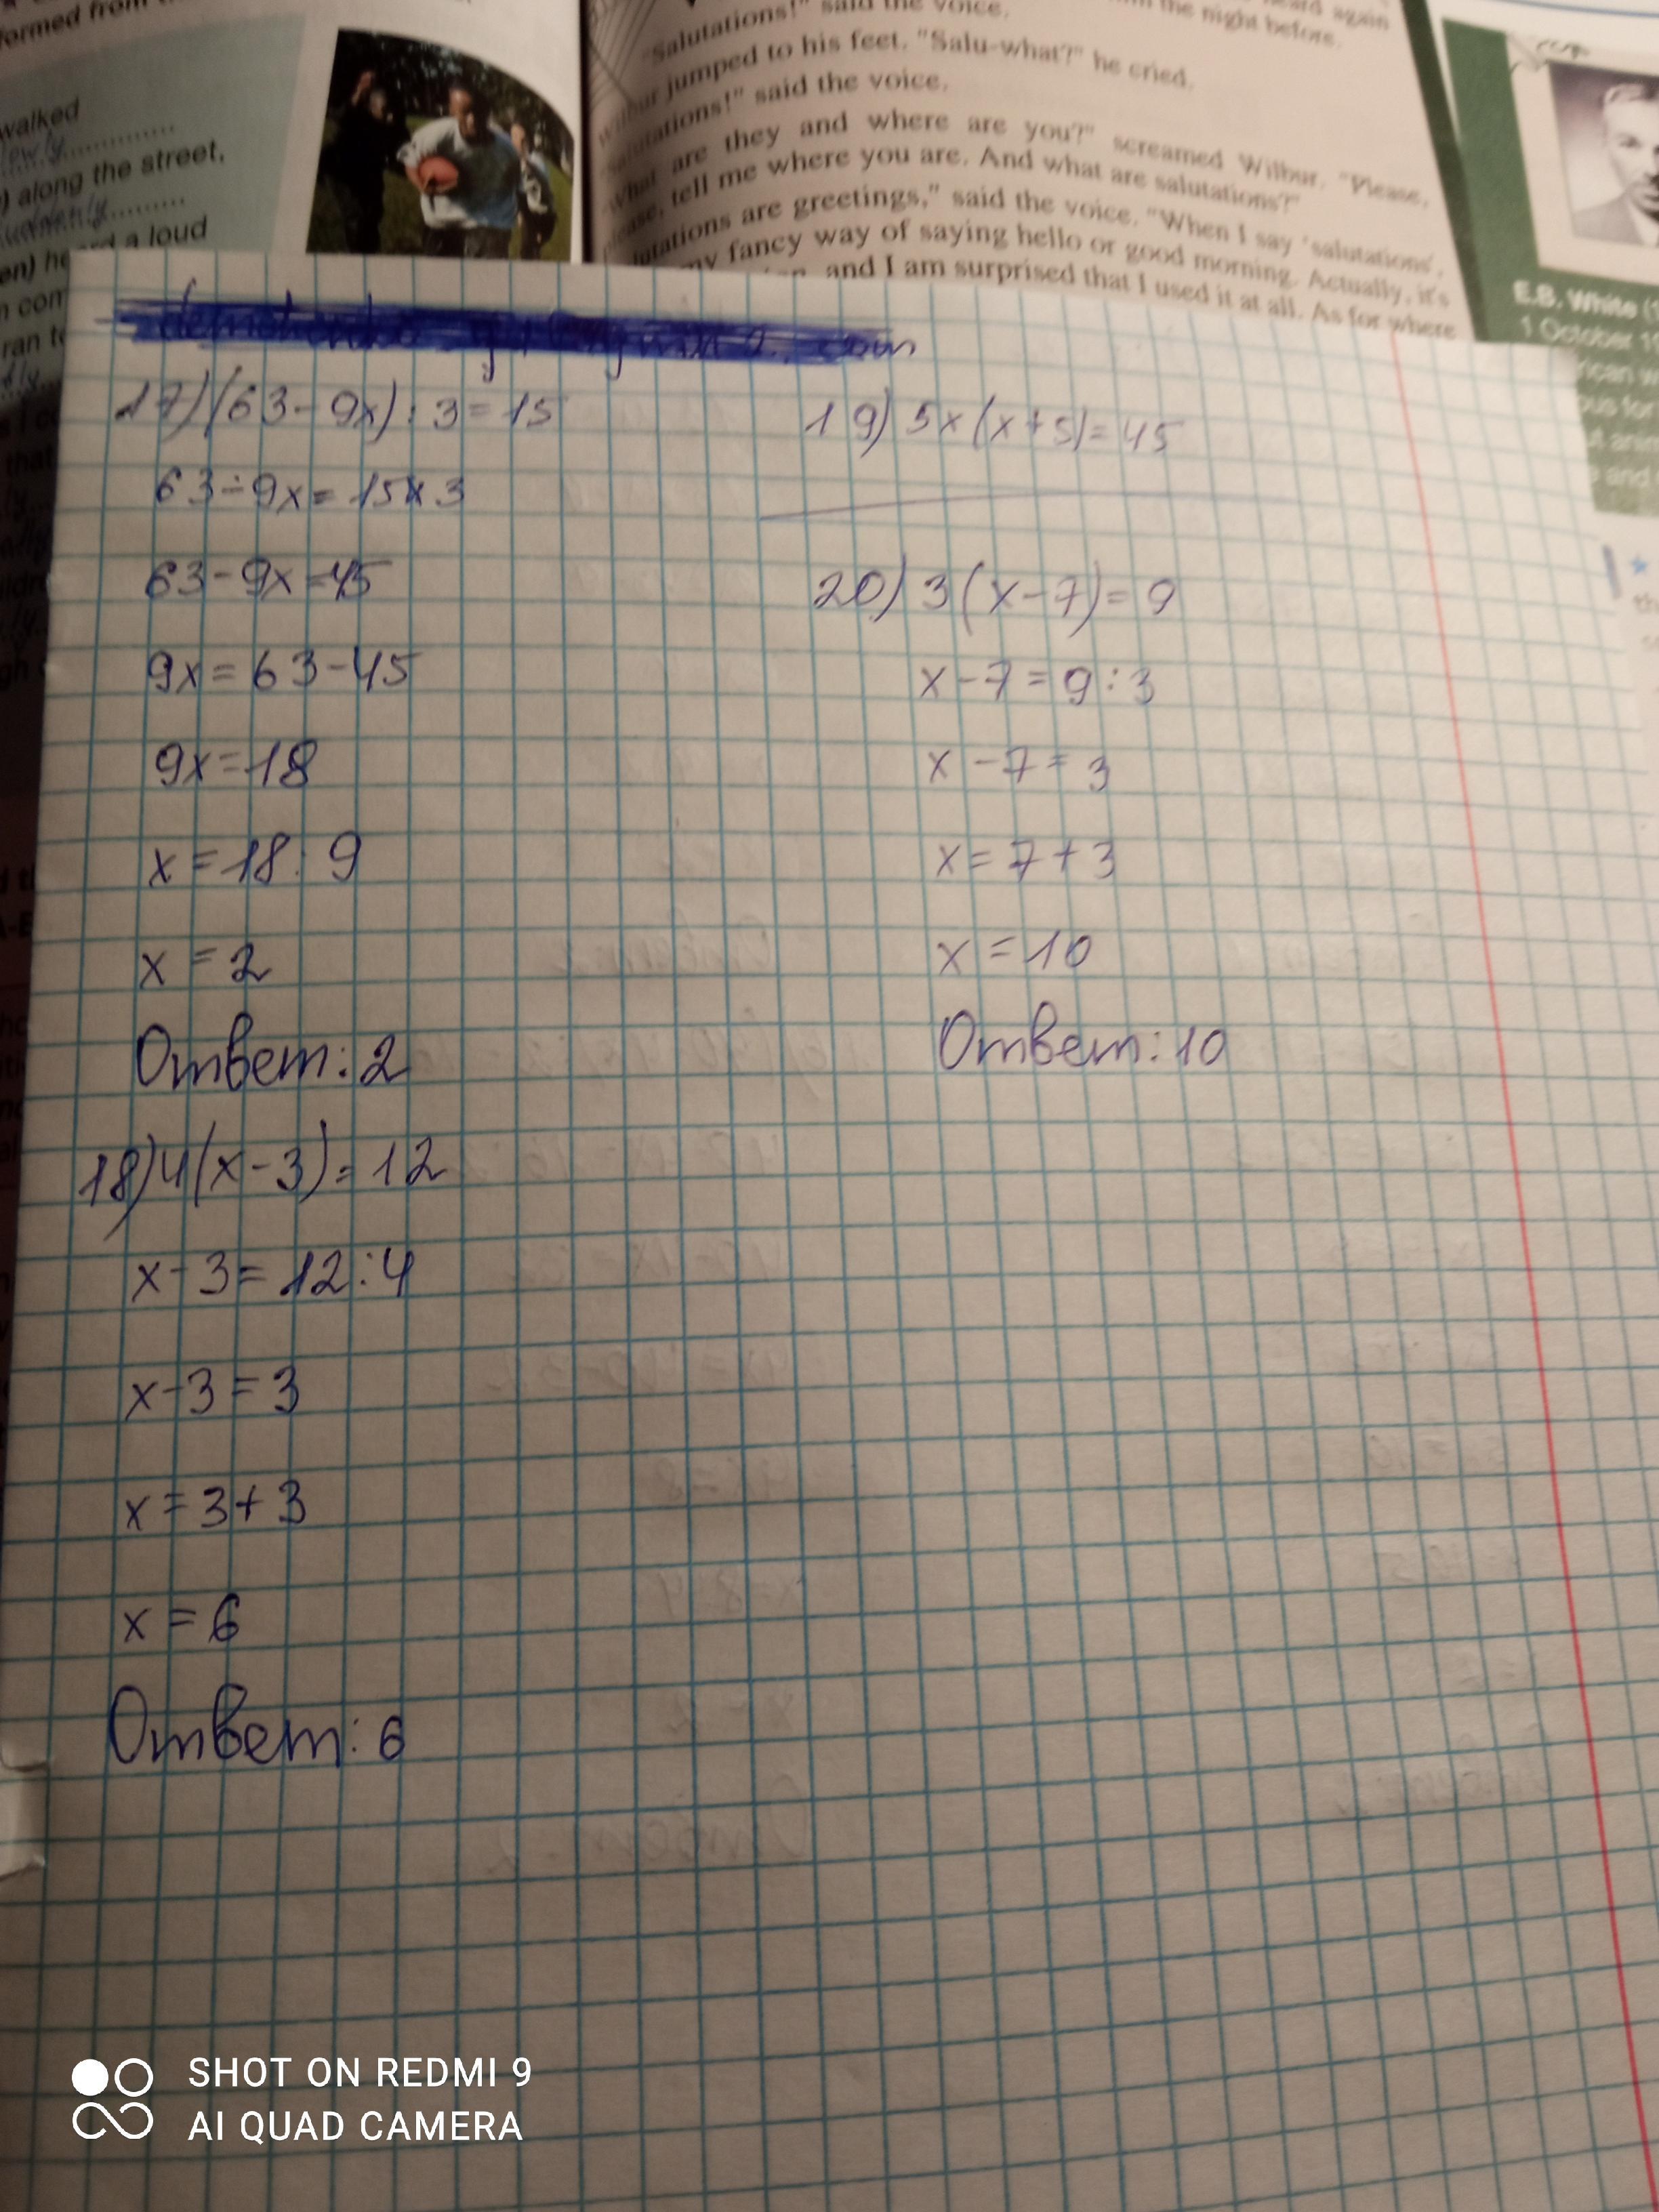 walked
along the street,
a loud
"Salutations!" said the voice.
jumped to his feet. "Salu-what?" he cried.
said the voice.
are they and where are you?" screamed Wilbur. "Please,
tell me where you are. And what are salutations?"
are greetings," said the voice. "When I say 'salutations',
my fancy way of saying hello or good morning. Actually, it's
and I am surprised that I used it at all. As for where
the night before.
again
E.B. White
1 October
17) (63-9x):3=15
63-9x=15x3
63-9x=45
9x=63-45
9x=18
x=18:9
x=2
Ответ: 2
18) 4(x-3)=12
x-3=12:4
x-3=3
x=3+3
x=6
Ответ: 6
19) 5x(x+5)=45
20) 3(x-7)=9
x-7=9:3
x-7=3
x=7+3
x=10
Ответ: 10
SHOT ON REDMI 9
AI QUAD CAMERA